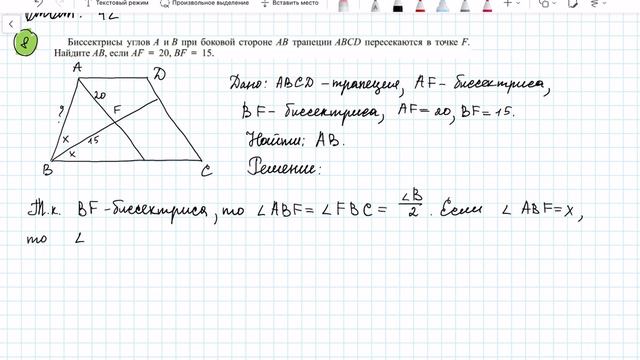 Текстовый режим Произвольное выделение Вид
42
8
Биссектрисы углов A и B при боковой стороне AB трапеции ABCD пересекаются в точке F.
Найдите AB, если AF = 20, BF = 15.
A D
20
F
?
x 15
x
B C
Дано: ABCD - трапеция, AF - биссектриса,
BF - биссектриса, AF = 20, BF = 15.
Найти: AB.
Решение:
Т.к. BF - биссектриса, то ∠ABF = ∠FBC = ∠B/2. Если ∠ABF = x,
то ∠